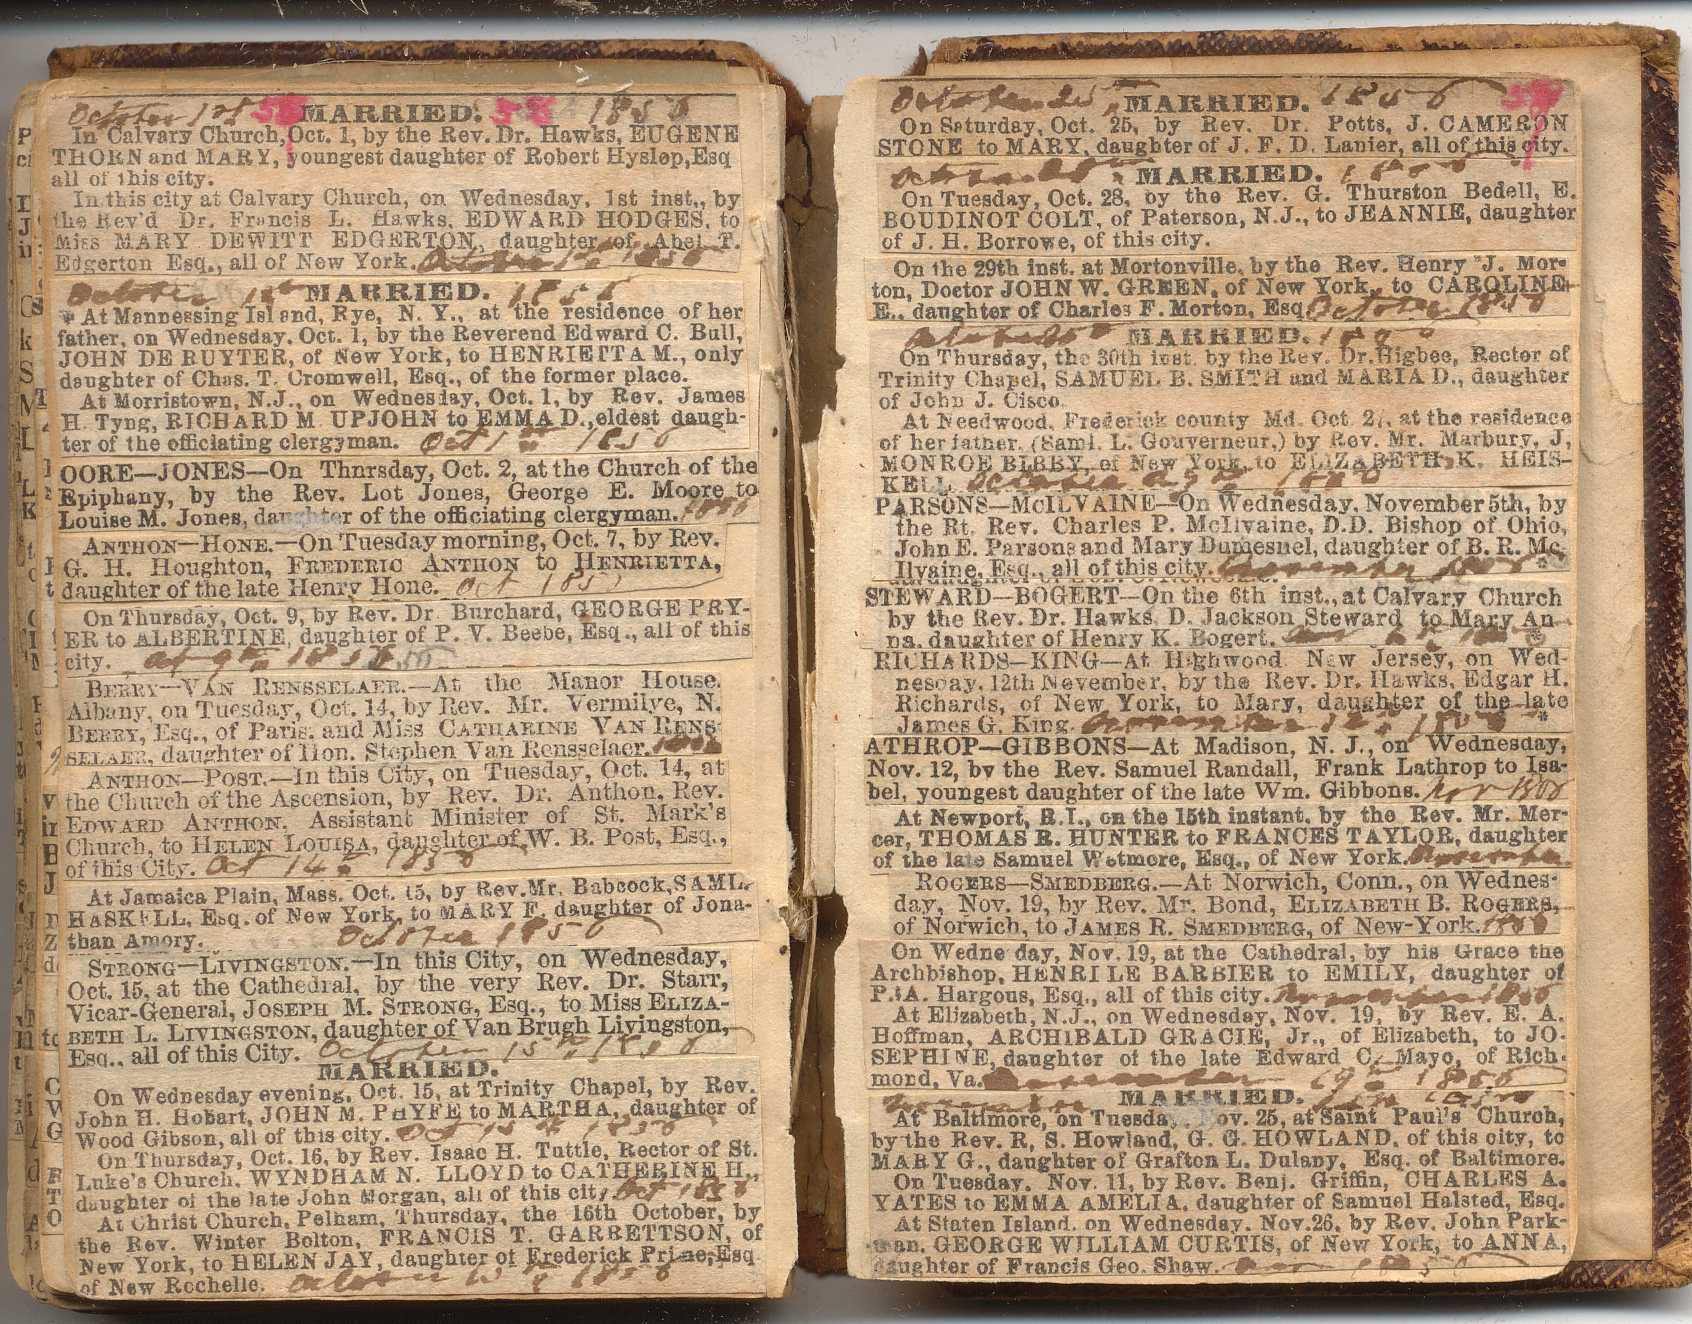 October 1st 58 MARRIED. 58 1856
In Calvary Church, Oct. 1, by the Rev. Dr. Hawks, EUGENE
THORN and MARY, youngest daughter of Robert Hyslop, Esq
all of this city.
In this city at Calvary Church, on Wednesday, 1st inst., by
the Rev'd Dr. Francis L. Hawks, EDWARD HODGES, to
Miss MARY DEWITT EDGERTON, daughter of Abel T.
Edgerton Esq., all of New York. October 1st 1856
October 1st MARRIED. 1856
At Mannessing Island, Rye, N. Y., at the residence of her
father, on Wednesday, Oct. 1, by the Reverend Edward C. Bull,
JOHN DE RUYTER, of New York, to HENRIETTA M., only
daughter of Chas. T. Cromwell, Esq., of the former place.
At Morristown, N.J., on Wednesday, Oct. 1, by Rev. James
H. Tyng, RICHARD M. UPJOHN to EMMA D., eldest daugh-
ter of the officiating clergyman. Oct 1st 1856
OORE—JONES—On Thnrsday, Oct. 2, at the Church of the
Epiphany, by the Rev. Lot Jones, George E. Moore to
Louise M. Jones, daughter of the officiating clergyman. 1856
ANTHON—HONE.—On Tuesday morning, Oct. 7, by Rev.
G. H. Houghton, FREDERIC ANTHON to HENRIETTA,
daughter of the late Henry Hone. Oct 185
On Thursday, Oct. 9, by Rev. Dr. Burchard, GEORGE PRY-
ER to ALBERTINE, daughter of P. V. Beebe, Esq., all of this
city. 1856
BERRY—VAN RENSSELAER.—At the Manor House.
Albany, on Tuesday, Oct. 14, by Rev. Mr. Vermilye, N.
BERRY, Esq., of Paris. and Miss CATHARINE VAN RENS-
SELAER, daughter of Hon. Stephen Van Rensselaer. 1856
ANTHON—POST.—In this City, on Tuesday, Oct. 14, at
the Church of the Ascension, by Rev. Dr. Anthon. Rev.
EDWARD ANTHON, Assistant Minister of St. Mark's
Church, to HELEN LOUISA, daughter of W. B. Post, Esq.,
of this City. Oct 14th 1856
At Jamaica Plain, Mass. Oct. 15, by Rev. Mr. Babcock, SAML.
HASKELL, Esq. of New York, to MARY F. daughter of Jona-
than Amory. October 1856
STRONG—LIVINGSTON.—In this City, on Wednesday,
Oct. 15, at the Cathedral, by the very Rev. Dr. Starr,
Vicar-General, JOSEPH M. STRONG, Esq., to Miss ELIZA-
BETH L. LIVINGSTON, daughter of Van Brugh Livingston,
Esq., all of this City. October 15th 1856
MARRIED.
On Wednesday evening, Oct. 15, at Trinity Chapel, by Rev.
John H. Hobart, JOHN M. PHYFE to MARTHA, daughter of
Wood Gibson, all of this city. Oct 15th 1856
On Thursday, Oct. 16, by Rev. Isaac H. Tuttle, Rector of St.
Luke's Church, WYNDHAM N. LLOYD to CATHERINE H.,
daughter of the late John Morgan, all of this city Oct 1856
At Christ Church, Pelham, Thursday, the 16th October, by
the Rev. Winter Bolton, FRANCIS T. GARRETTSON, of
New York, to HELEN JAY, daughter of Frederick Prime, Esq
of New Rochelle. October 1856
October 25 MARRIED. 1856 59
On Saturday, Oct. 25, by Rev. Dr. Potts, J. CAMERON
STONE to MARY, daughter of J. F. D. Lanier, all of this city.
MARRIED. 1856
On Tuesday, Oct. 28, by the Rev. G. Thurston Bedell, E.
BOUDINOT COLT, of Paterson, N.J., to JEANNIE, daughter
of J. H. Borrowe, of this city.
On the 29th inst. at Mortonville, by the Rev. Henry J. Mor-
ton, Doctor JOHN W. GREEN, of New York, to CAROLINE
E., daughter of Charles F. Morton, Esq October 1856
MARRIED. 1856
On Thursday, the 30th inst. by the Rev. Dr. Higbee, Rector of
Trinity Chapel, SAMUEL B. SMITH and MARIA D., daughter
of John J. Cisco.
At Needwood, Frederick county Md. Oct 2 at the residence
of her father, (Saml. L. Gouverneur,) by Rev. Mr. Marbury, J,
MONROE BIBBY, of New York, to ELIZABETH K. HEIS-
KELL. October 1856
PARSONS—McILVAINE—On Wednesday, November 5th, by
the Rt. Rev. Charles P. McIlvaine, D.D. Bishop of Ohio,
John E. Parsons and Mary Dumesnel, daughter of B. R. Mc-
Ilvaine, Esq., all of this city. November 1856
STEWARD—BOGERT—On the 6th inst., at Calvary Church
by the Rev. Dr. Hawks, D. Jackson Steward to Mary An-
na, daughter of Henry K. Bogert.
RICHARDS—KING—At Highwood, New Jersey, on Wed-
nesday, 12th November, by the Rev. Dr. Hawks, Edgar H.
Richards, of New York, to Mary, daughter of the late
James G. King. November 12th 1856
ATHROP—GIBBONS—At Madison, N. J., on Wednesday,
Nov. 12, by the Rev. Samuel Randall, Frank Lathrop to Isa-
bel, youngest daughter of the late Wm. Gibbons. Nov 1856
At Newport, R.I., on the 15th instant, by the Rev. Mr. Mer-
cer, THOMAS R. HUNTER to FRANCES TAYLOR, daughter
of the late Samuel Wetmore, Esq., of New York. November
ROGERS—SMEDBERG.—At Norwich, Conn., on Wednes-
day, Nov. 19, by Rev. Mr. Bond, ELIZABETH B. ROGERS,
of Norwich, to JAMES R. SMEDBERG, of New-York. 1856
On Wedne day, Nov. 19, at the Cathedral, by his Grace the
Archbishop, HENRI LE BARBIER to EMILY, daughter of
P. A. Hargous, Esq., all of this city. November 1856
At Elizabeth, N.J., on Wednesday, Nov. 19, by Rev. E. A.
Hoffman, ARCHIBALD GRACIE, Jr., of Elizabeth, to JO-
SEPHINE, daughter of the late Edward C. Mayo, of Rich-
mond, Va. November 19th 1856
November MARRIED.
At Baltimore, on Tuesday, Nov. 25, at Saint Paul's Church,
by the Rev. R. S. Howland, G. G. HOWLAND, of this city, to
MARY G., daughter of Grafton L. Dulany, Esq. of Baltimore.
On Tuesday, Nov. 11, by Rev. Benj. Griffin, CHARLES A.
YATES to EMMA AMELIA, daughter of Samuel Halsted, Esq.
At Staten Island, on Wednesday, Nov. 26, by Rev. John Park-
man, GEORGE WILLIAM CURTIS, of New York, to ANNA,
daughter of Francis Geo. Shaw. 1856